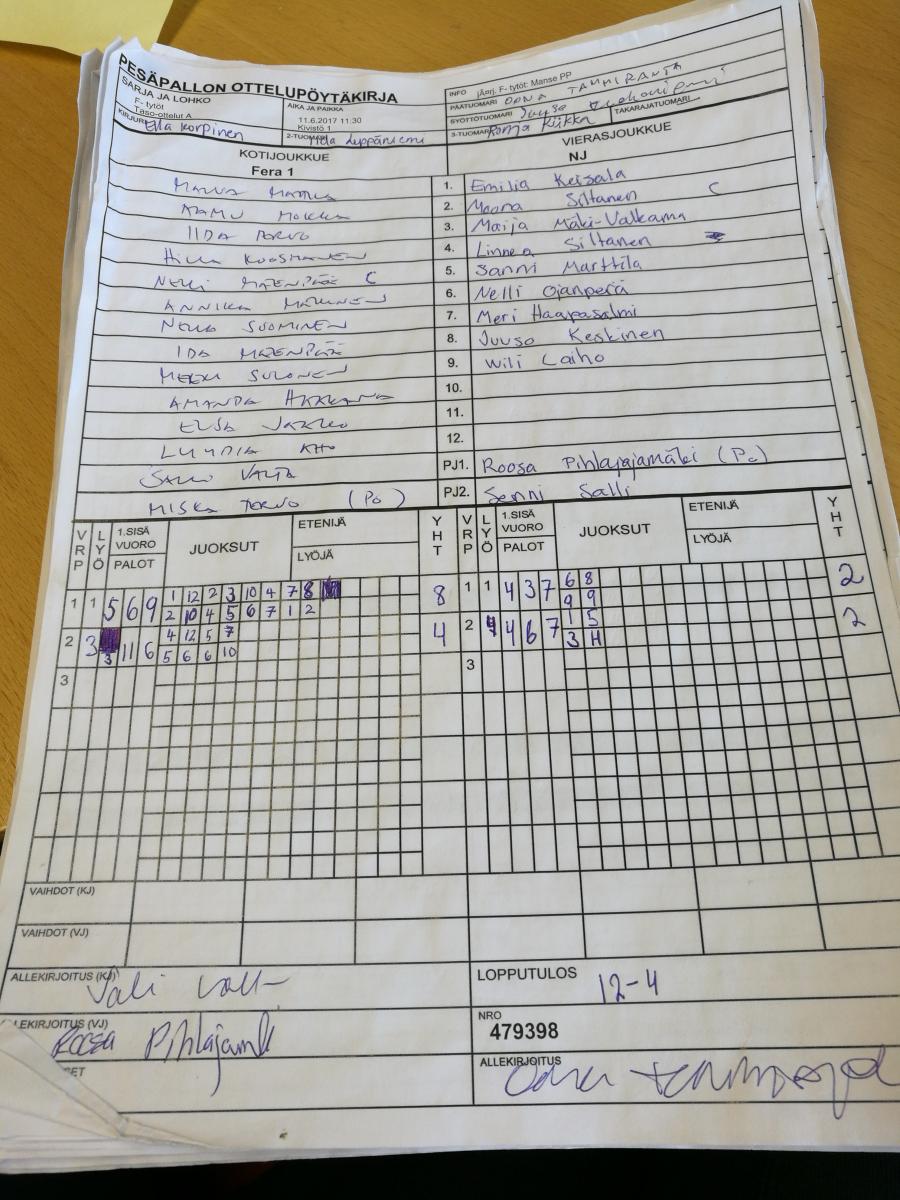 PESÄPALLON OTTELUPÖYTÄKIRJA
SARJA JA LOHKO
F- tytöt
Taso-ottelut A
AIKA JA PAIKKA
11.6.2017 11:30
Kivistö 1
INFO jÄrj. F- tytöt: Manse PP
PÄÄTUOMARI OONA TAMMIRANTA
SYÖTTÖTUOMARI
TAKARAJATUOMARI
KIRJURI Ella Korpinen
2-TUOMARI Iida Leppäniemi
3-TUOMARI Ronja Kukka
KOTIJOUKKUE
VIERASJOUKKUE
Fera 1
NJ
1. Emilia Keisala
NAMU MOKKA 2. Moona Siltanen C
IIDA TORVO 3. Maija Mäki-Valkama
HILLA KOOSMANEN 4. Linnea Siltanen
NELLI MÄENPÄÄ C 5. Sanni Marttila
ANNIKA MÄKINEN 6. Nelli Ojanperä
NELLA SUOMINEN 7. Meri Haapasalmi
IDA MÄENPÄÄ 8. Juuso Keskinen
SULONEN 9. Wili Laiho
AMANDA 10.
ELSA 11.
LUYDIA 12.
SALLI VALTA PJ1. Roosa Pihlajajamäki (Po)
MISKA TORVO (Po) PJ2. Senni Salli
VRP LYÖ 1.SISÄ VUORO PALOT JUOKSUT ETENIJÄ LYÖJÄ YHT VRP LYÖ 1.SISÄ VUORO PALOT JUOKSUT ETENIJÄ LYÖJÄ YHT
1 1 5 6 9 1 12 2 3 10 4 7 8 8 1 1 4 3 7 6 8 2
2 10 4 5 6 7 1 2 9 9
2 3 3 11 6 4 12 5 7 4 2 4 4 6 7 1 5 2
5 6 6 10 3 H
3 3
VAIHDOT (KJ)
VAIHDOT (VJ)
ALLEKIRJOITUS (KJ)
LOPPUTULOS 12-4
ALLEKIRJOITUS (VJ) Roosa Pihlajamä
NRO
479398
ALLEKIRJOITUS